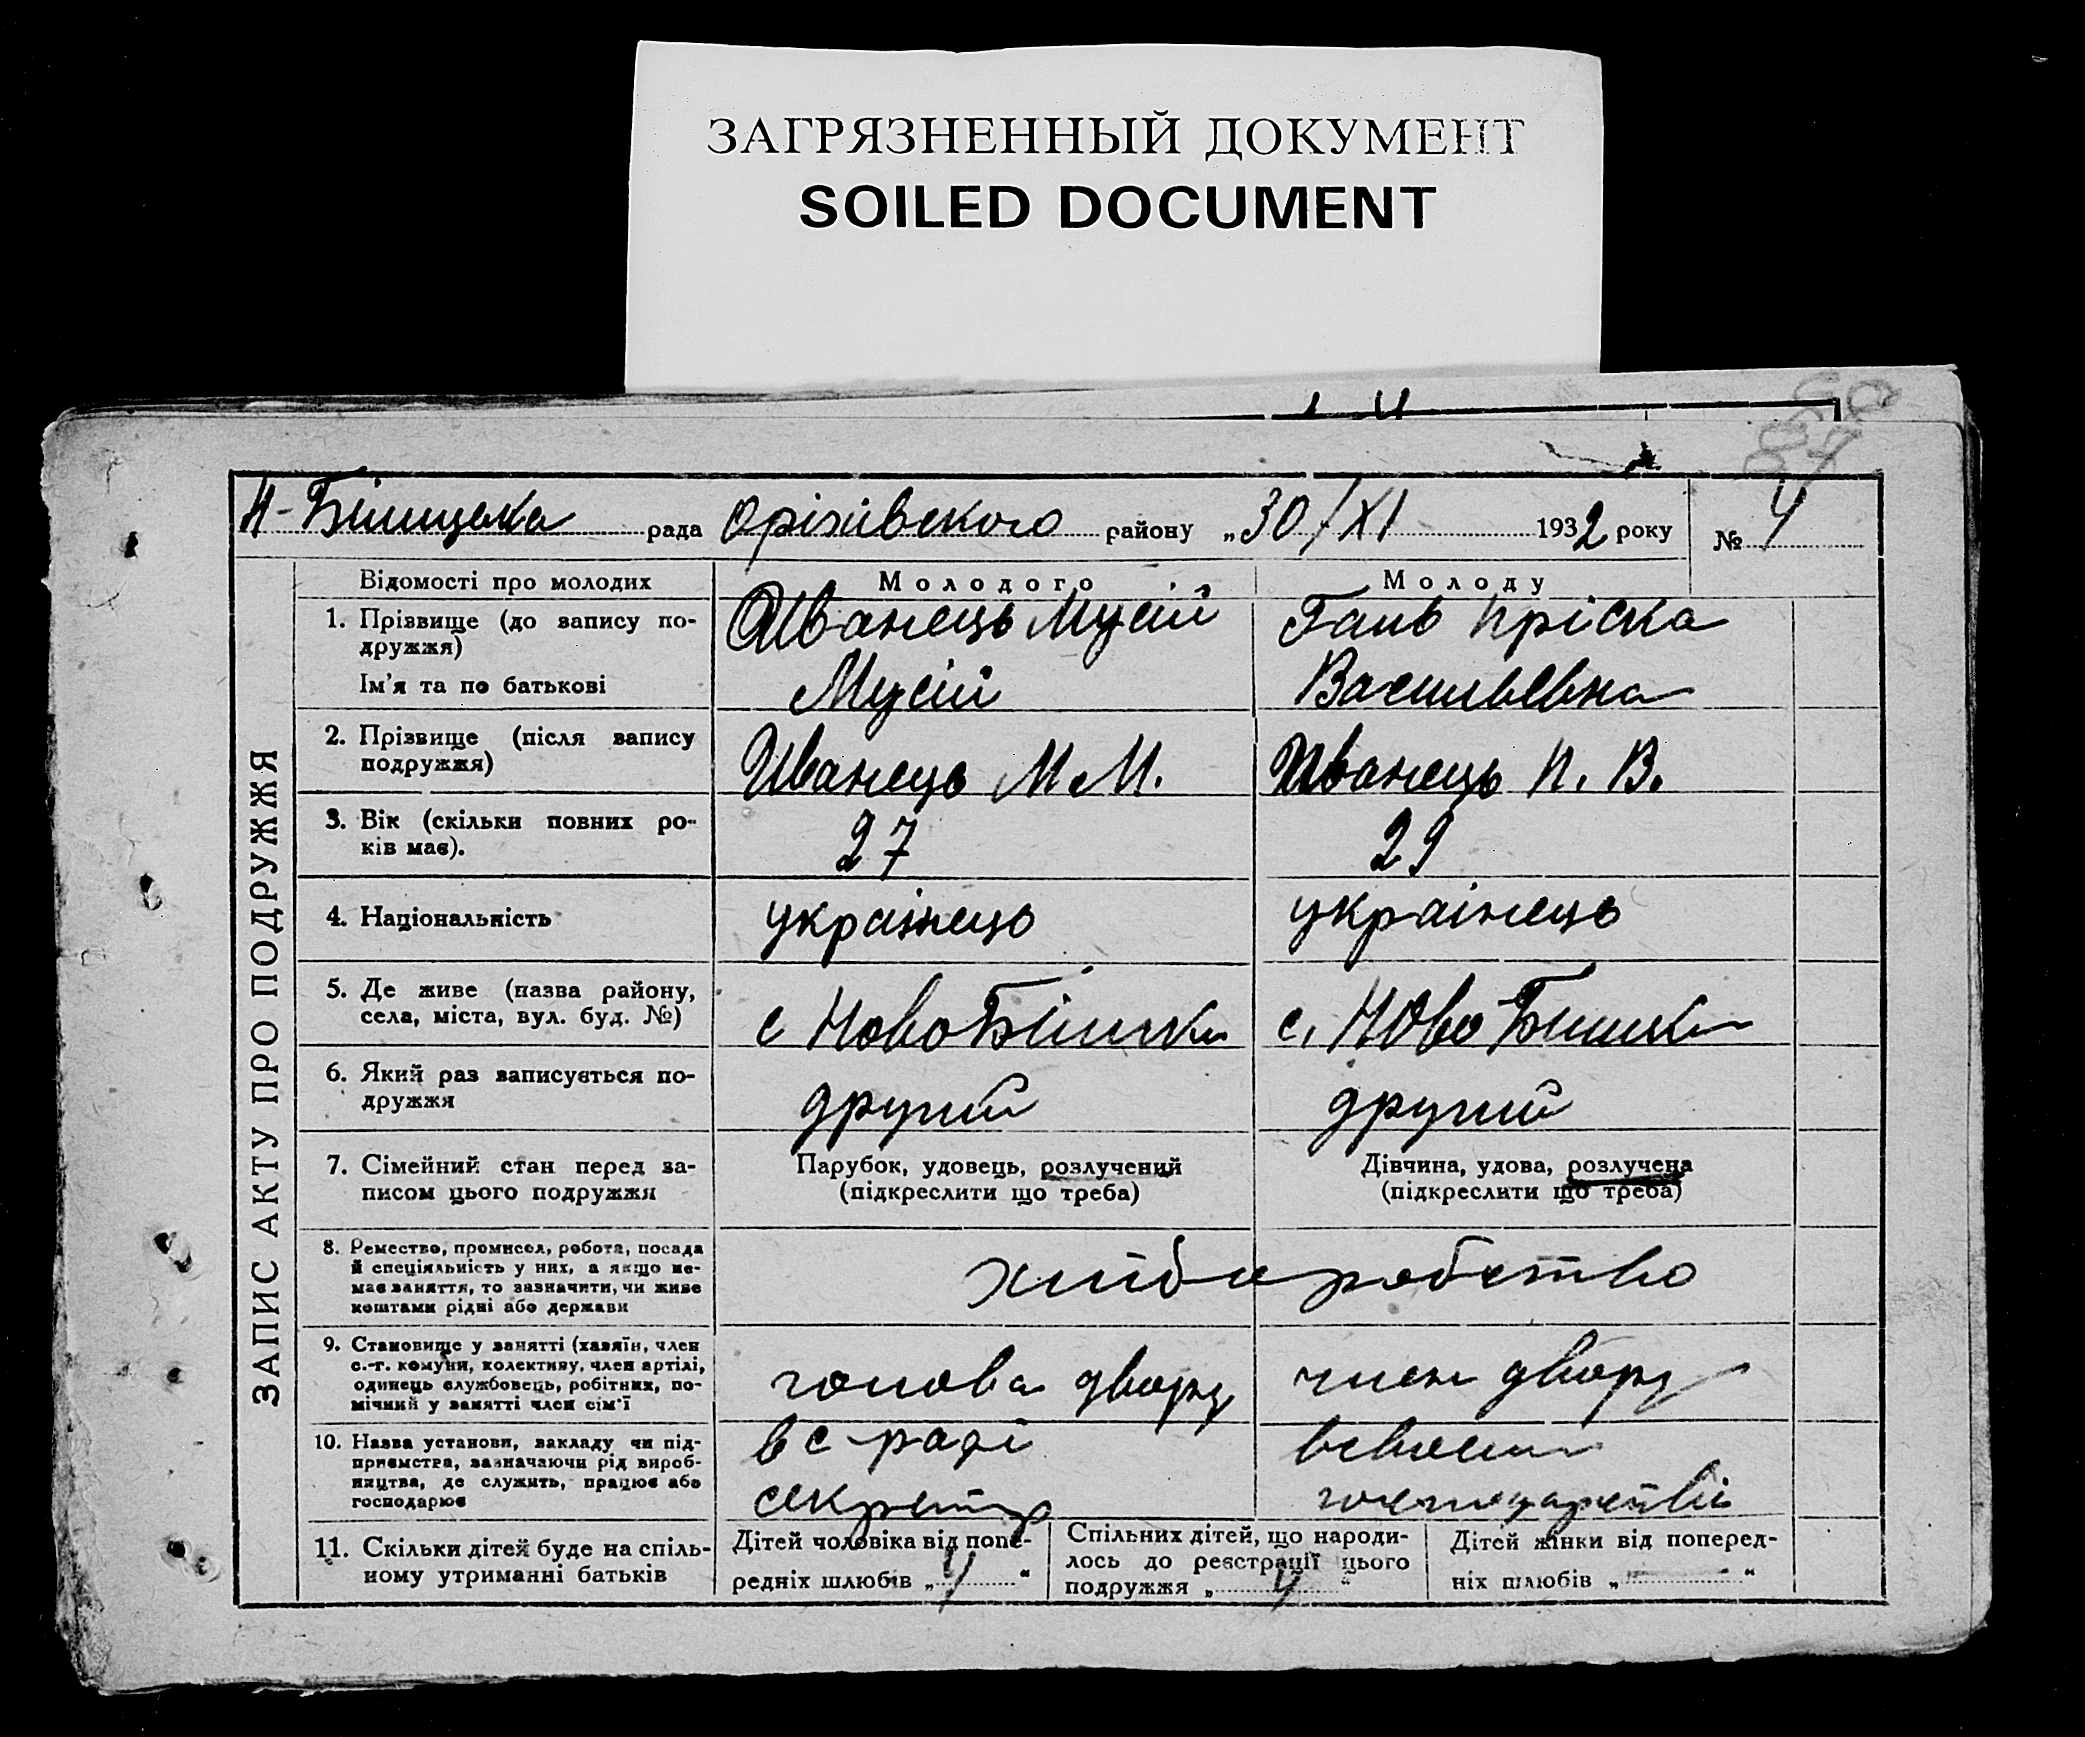 ЗАГРЯЗНЕННЫЙ ДОКУМЕНТ
SOILED DOCUMENT
87
рада Оріхівського району „30/XI 1932 року № 4
ЗАПИС АКТУ ПРО ПОДРУЖЖЯ
Відомості про молодих
Молодого
Молоду
1. Прізвище (до запису по-
дружжя)
Ім'я та по батькові
Иванець Мусій
Мусій
Гань Пріска
Васильевна
2. Прізвище (після запису
подружжя)
Иванець М. М.
Иванець П. В.
3. Вік (скільки повних ро-
ків має).
27
29
4. Національність
українець
українець
5. Де живе (назва району,
села, міста, вул. буд. №)
с Ново
с. Ново
6. Який раз записується по-
дружжя
другий
другий
7. Сімейний стан перед за-
писом цього подружжя
Парубок, удовець, розлучений
(підкреслити що треба)
Дівчина, удова, розлучена
(підкреслити що треба)
8. Ремество, промисел, робота, посада
й спеціяльність у них, а якщо не-
має заняття, то зазначити, чи живе
коштами рідні або держави
хліборобство
9. Становище у занятті (хазяїн, член
с.-г. комуни, колективу, член артілі,
одинець службовець, робітник, по-
мічний у занятті член сім'ї
голова двору
член двору
10. Назва установи, закладу чи під-
приємства, зазначаючи рід вироб-
ництва, де служить, працює або
господарює
в с-раді
секретар
в своєм
господарстві
11. Скільки дітей буде на спіль-
ному утриманні батьків
Дітей чоловіка від попе-
редніх шлюбів „ 4 “
Спільних дітей, що народи-
лось до реєстрації цього
подружжя „ 4 “
Дітей жінки від поперед-
ніх шлюбів „ “